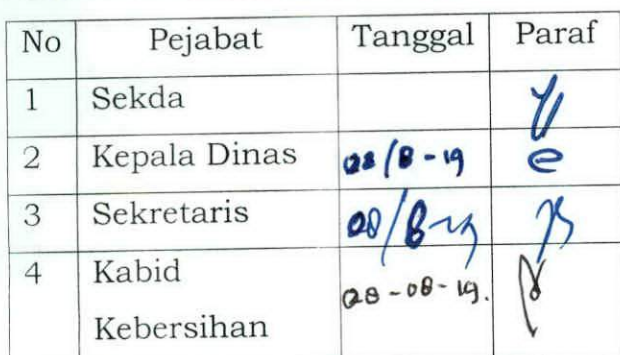 No Pejabat Tanggal Paraf
1 Sekda
2 Kepala Dinas 28/8-19
3 Sekretaris 28/8-19
4 Kabid 28-08-19.
Kebersihan